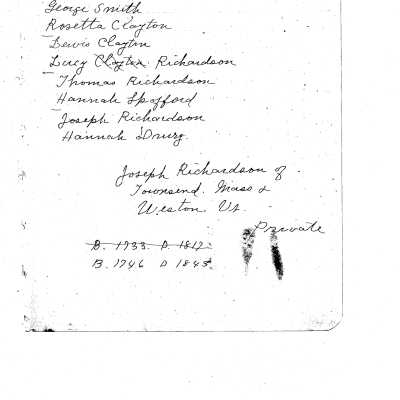 George Smith
Rosetta Clayton
Lewis Clayton
Lucy Clayton Richardson
Thomas Richardson
Hannah Spafford
Joseph Richardson
Hannah Drury
Joseph Richardson of
Townsend. Mass &
Weston. Vt.
Private
B. 1733. D. 1812.
B. 1746 D 1845.